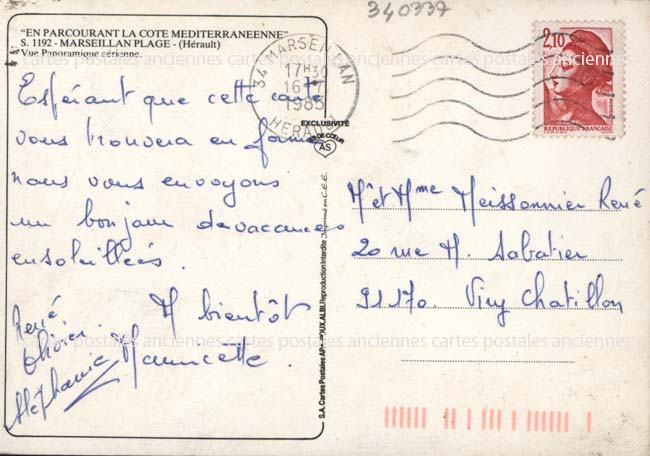 340337
"EN PARCOURANT LA COTE MEDITERRANEENNE"
S. 1192 - MARSEILLAN PLAGE - (Hérault)
Vue Panoramique aérienne.
cartes postales anciennes cartes postales anciennes cartes postales anciennes
34 MARSEILLAN
17H30
16-7
1985
HERAULT
2,10
REPUBLIQUE FRANÇAISE
EXCLUSIVITÉ
AS
Espérant que cette carte
vous trouvera en forme
nous vous envoyons
un bonjour de vacances
ensoleillées.
A bientôt
René
Olivier
Stéphanie
Mauricette.
Mr et Mme Meissonnier René
20 rue H. Sabatier
91170. Viry Chatillon
cartes postales anciennes cartes postales anciennes cartes postales anciennes